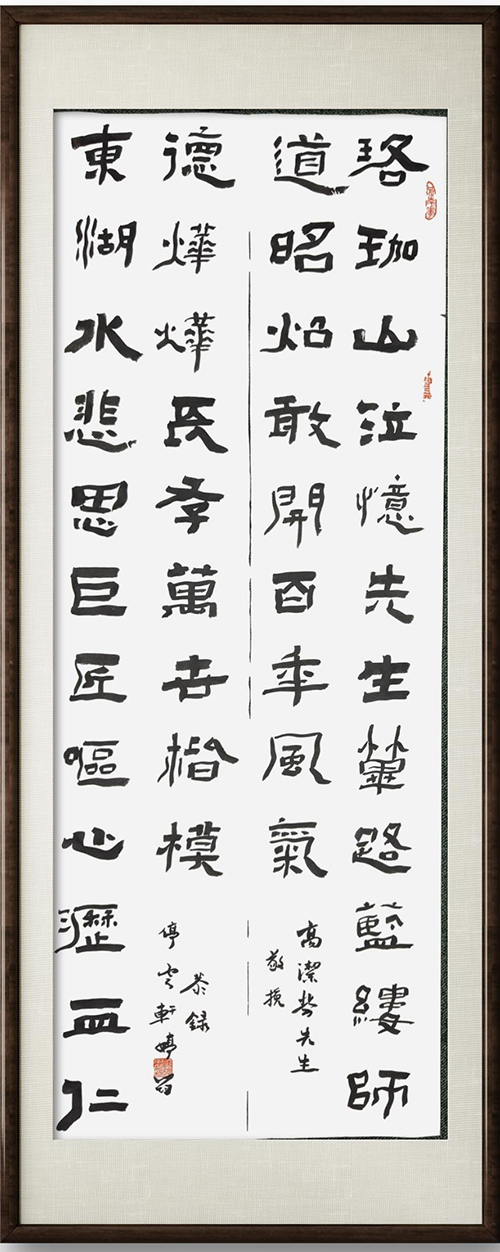 珞珈山泣憶先生篳路藍縷師
道昭炤敢開百年風氣
高潔先生
敬撰
東湖水悲思巨匠嘔心瀝血仁
德燁燁孚萬世楷模
恭録
停雲軒婷